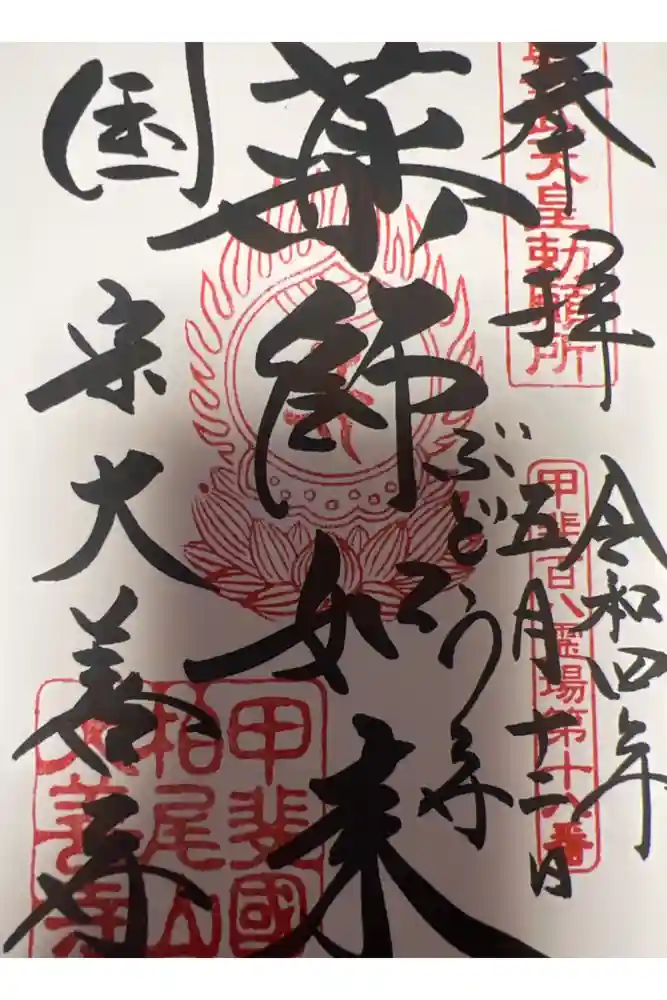 奉拝
令和四年
五月十二日
薬師如来
ぶどう寺
国宝
大善寺
武天皇勅願所
甲斐百八霊場第十八番
甲斐國
柏尾山
大善寺